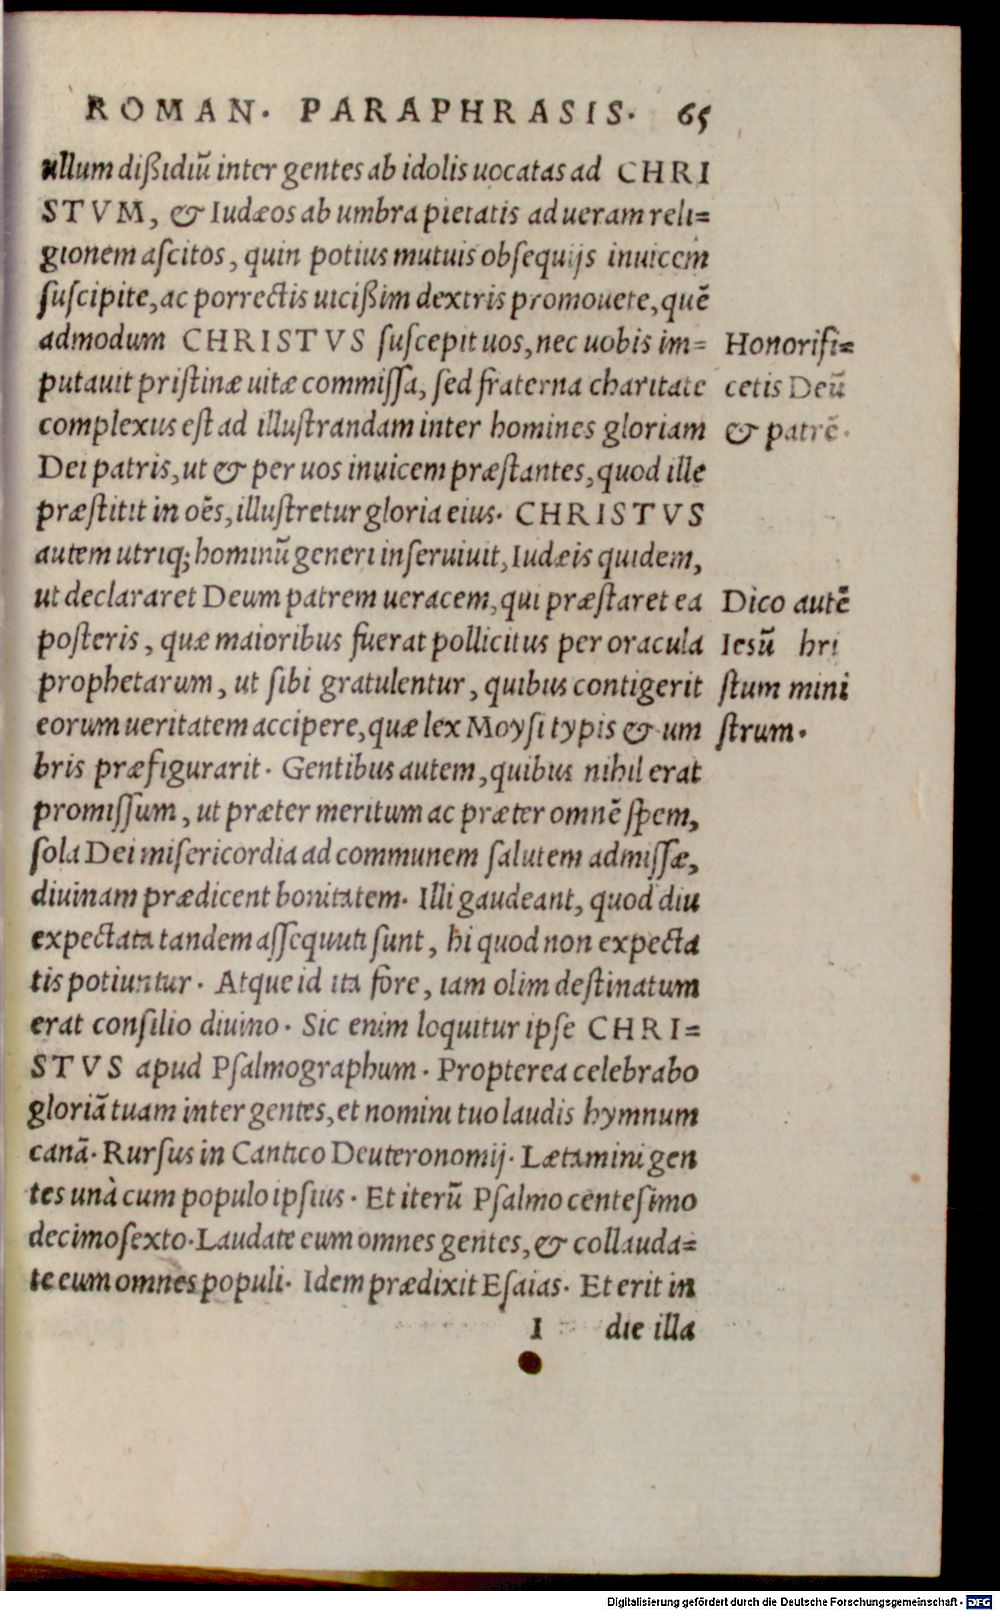 ROMAN. PARAPHRASIS. 65
ullum dißidiũ inter gentes ab idolis uocatas ad CHRI
STVM, & Iudæos ab umbra pietatis ad ueram reli=
gionem ascitos, quin potius mutuis obsequijs inuicem
suscipite, ac porrectis uicißim dextris promouete, quẽ
admodum CHRISTVS suscepit uos, nec uobis im=
putauit pristinæ uitæ commissa, sed fraterna charitate
complexus est ad illustrandam inter homines gloriam
Dei patris, ut & per uos inuicem præstantes, quod ille
præstitit in oẽs, illustretur gloria eius. CHRISTVS
autem utriq; hominũ generi inseruiuit, Iudæis quidem,
ut declararet Deum patrem ueracem, qui præstaret ea
posteris, quæ maioribus fuerat pollicitus per oracula
prophetarum, ut sibi gratulentur, quibus contigerit
eorum ueritatem accipere, quæ lex Moysi typis & um
bris præfigurarit. Gentibus autem, quibus nihil erat
promissum, ut præter meritum ac præter omnẽ spem,
sola Dei misericordia ad communem salutem admissæ,
diuinam prædicent bonitatem. Illi gaudeant, quod diu
expectata tandem assequuti sunt, hi quod non expecta
tis potiuntur. Atque id ita fore, iam olim destinatum
erat consilio diuino. Sic enim loquitur ipse CHRI=
STVS apud Psalmographum. Propterea celebrabo
gloriã tuam inter gentes, et nomini tuo laudis hymnum
canã. Rursus in Cantico Deuteronomij. Lætamini gen
tes unà cum populo ipsius. Et iterũ Psalmo centesimo
decimosexto. Laudate eum omnes gentes, & collauda=
te eum omnes populi. Idem prædixit Esaias. Et erit in
I die illa
Honorifi=
cetis Deũ
& patrẽ.
Dico autẽ
Iesũ hri
stum mini
strum.
Digitalisierung gefördert durch die Deutsche Forschungsgemeinschaft - DFG